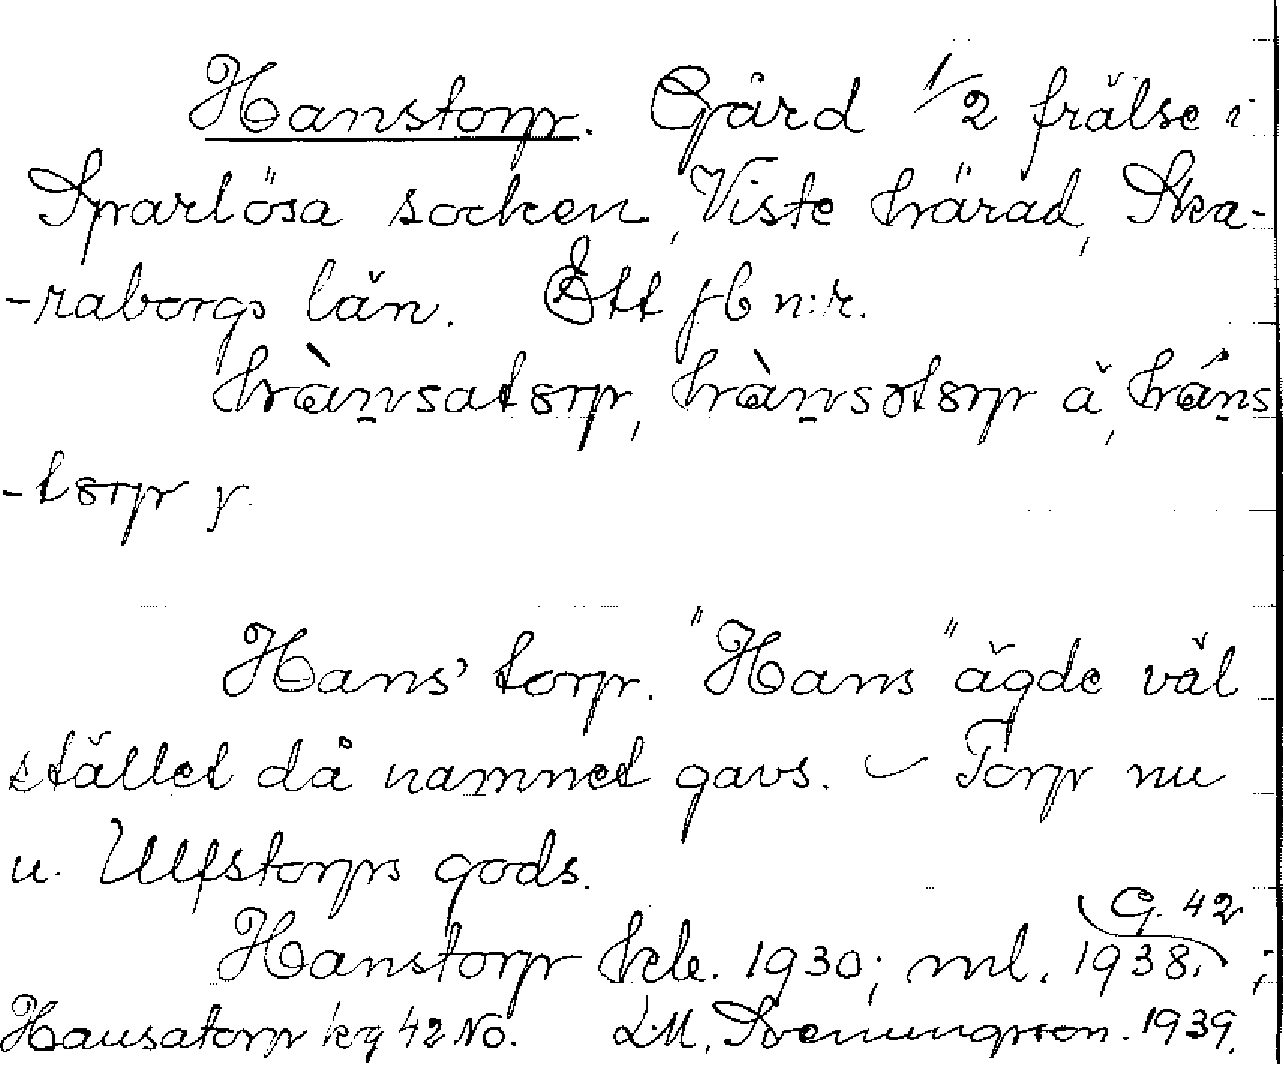 Hanstorp. Gård 1/2 frälse i
Sparlösa socken, Viste härad, Ska-
-raborgs län. Ett jb n:r.
hànsatorp, hànsətorp ä, háns
-torp y.
Hans' torp. "Hans" ägde väl
stället då namnet gavs. – Torp nu
u. Ulfstorps gods.
G. 42
Hanstorp hek. 1930; ml. 1938. ;
Hansatorp kg 42 NO. L.M. Svenungsson. 1939.